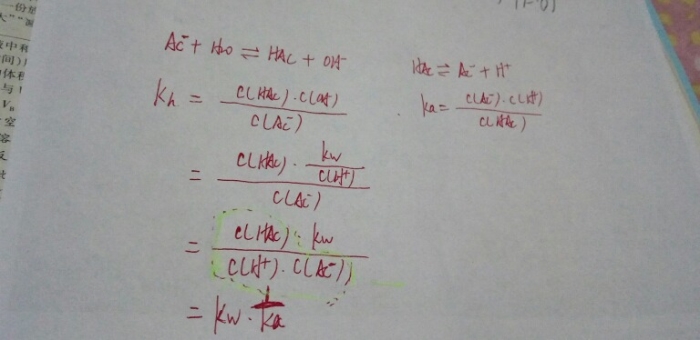 Ac⁻ + H₂O ⇌ HAc + OH⁻
HAc ⇌ Ac⁻ + H⁺
Kh = c(HAc)·c(OH⁻) / c(Ac⁻)
Ka = c(Ac⁻)·c(H⁺) / c(HAc)
= c(HAc)· Kw/c(H⁺) / c(Ac⁻)
= c(HAc)·Kw / c(H⁺)·c(Ac⁻))
= Kw · 1/Ka